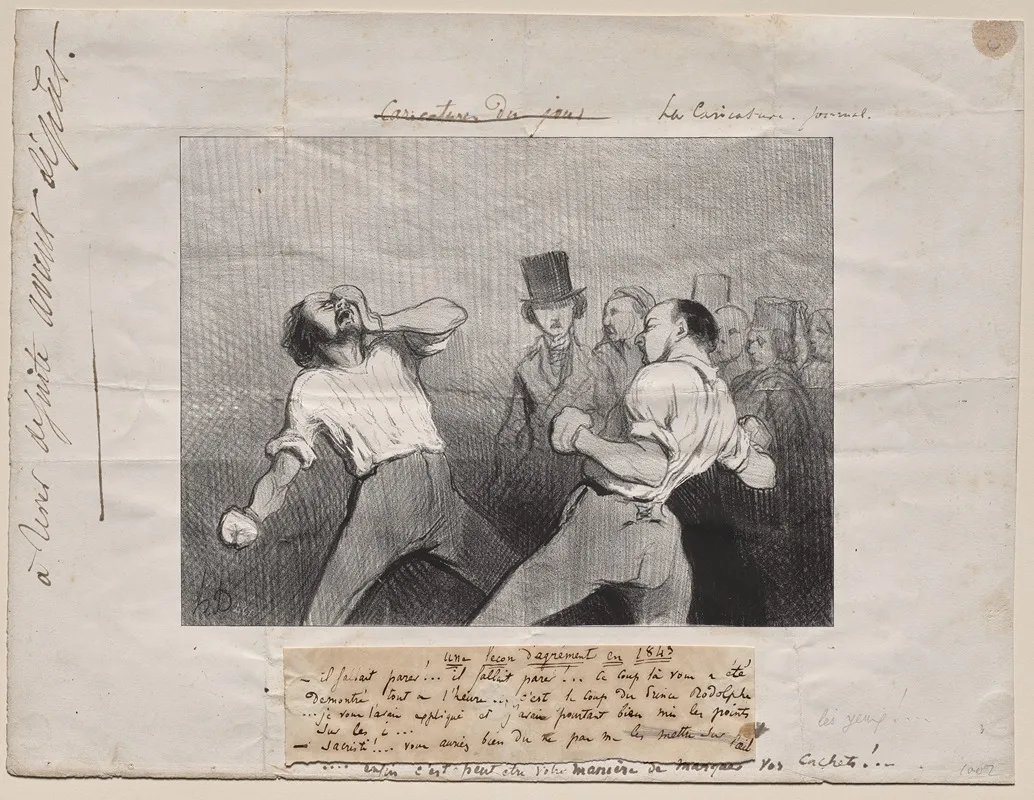 à tenir de suite avant dépot.
Caricatures du jour
La Caricature. journal.
h.D.
une leçon d'agrement en 1843
— il fallait parer!... il fallait parer!... ce coup là vous a été
demontré tout a l'heure... c'est le coup du Prince Rodolphe
... je vous l'avais expliqué et j'avais pourtant bien mis les points
sur les i...
— sacristi!... vous auriez bien du ne pas me les mettre sur l'œil
les yeux!...
.... enfin c'est peut etre votre maniere de marquer vos cachets!...
1002